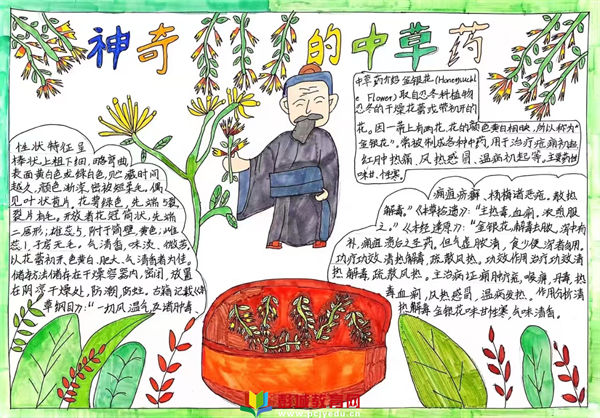 神奇的中草药
中草药介绍 金银花(Honeysuckl
e Flower)取自忍冬科植物
忍冬的干燥花蕾或带初开的
花。因一蒂上有两花,花的颜色黄白相映,所以称为"
金银花"。常被制成各种中药,用于治疗疮痈初起,
红肿热痛,风热感冒、温病初起等。主要药性
味甘,性寒。
性状特征呈
棒状上粗下细,略弯曲,
表面黄白色或绿白色,贮藏时间
越久,颜色渐深,密被短柔毛。偶
见叶状苞片,花萼绿色,先端5裂
裂片有毛。开放者花冠筒状,先端
二唇形;雄蕊5,附于筒壁,黄色;雌蕊
1,子房无毛。气清香,味淡、微苦。
以花蕾初开、色黄白、肥大、气清香者为佳。
储存方法储存在干燥容器内,密闭,放置
在阴凉干燥处,防潮,防蛀。古籍记载《本
草纲目》:"一切风湿气,及诸肿毒、
痈疽疥癣、杨梅诸恶疮。散热
解毒。"
"金银花,解毒去脓,泻中有
补,痈疽溃后之圣药。但气虚脓清,食少便泻者勿用。
功疗功效清热解毒,疏散风热。功效作用治疗功效清
热解毒,疏散风热。主治病证痈肿疔疮,喉痹,丹毒,热
毒血痢,风热感冒,温病发热。作用分析清
热解毒 金银花味甘性寒,气味清香。
彭城教育网
www.pcjyedu.cn